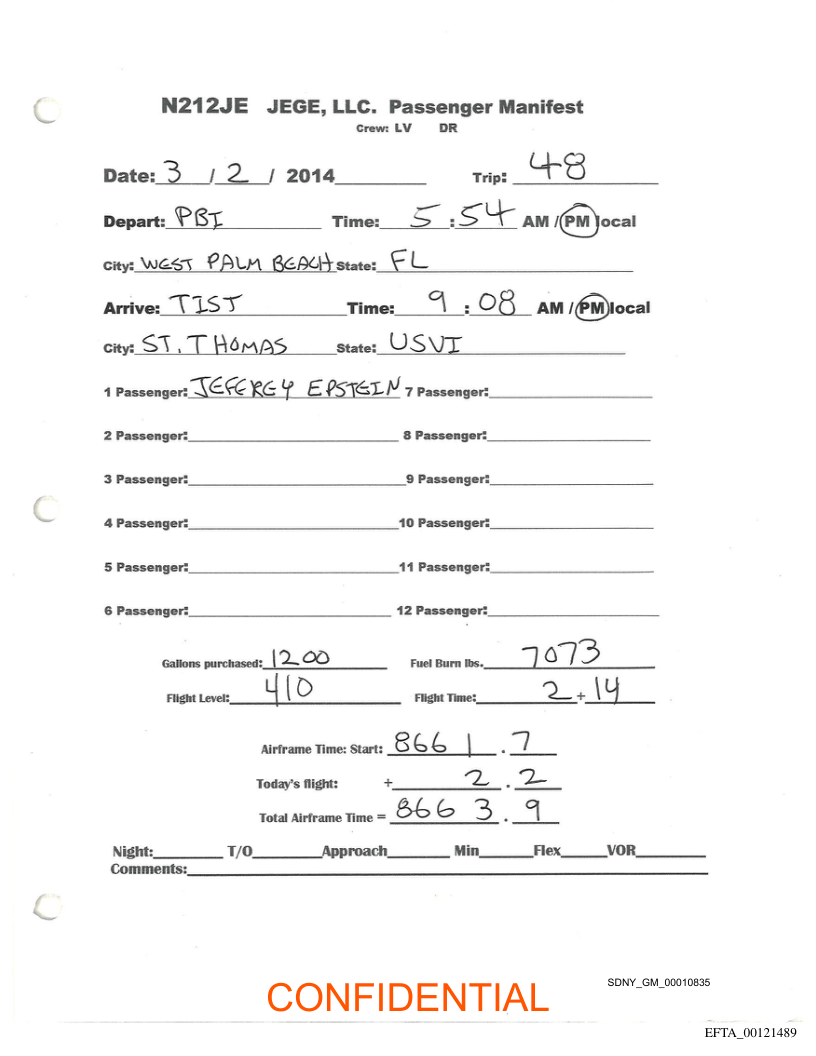 N212JE JEGE, LLC. Passenger Manifest
Crew: LV DR
Date: 3 / 2 / 2014 Trip: 48
Depart: PBI Time: 5 : 54 AM / PM local
City: WEST PALM BEACH State: FL
Arrive: TIST Time: 9 : 08 AM / PM local
City: ST. THOMAS State: USVI
1 Passenger: JEFFREY EPSTEIN 7 Passenger:
2 Passenger: 8 Passenger:
3 Passenger: 9 Passenger:
4 Passenger: 10 Passenger:
5 Passenger: 11 Passenger:
6 Passenger: 12 Passenger:
Gallons purchased: 1200 Fuel Burn lbs. 7073
Flight Level: 410 Flight Time: 2 + 14
Airframe Time: Start: 8661 . 7
Today's flight: + 2 . 2
Total Airframe Time = 8663 . 9
Night: T/O Approach Min Flex VOR
Comments:
SDNY_GM_00010835
CONFIDENTIAL
EFTA_00121489